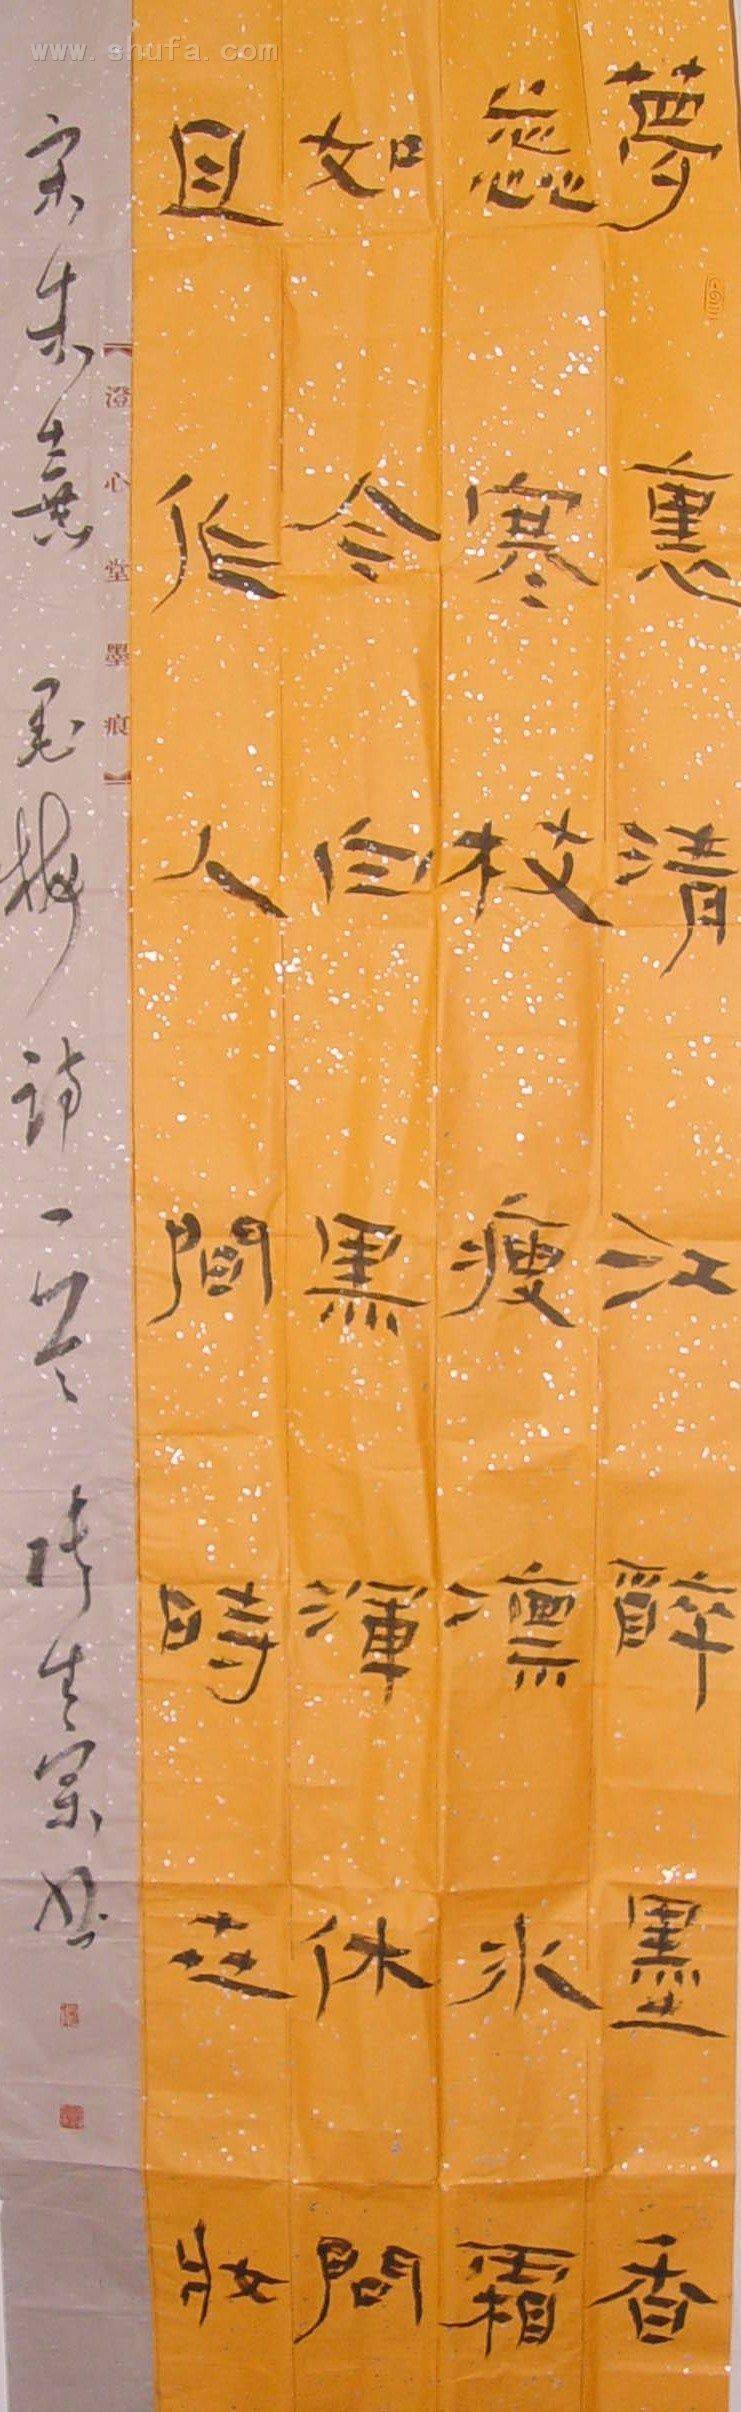 www.shufa.com
夢裏清江醉墨香
蕊寒枝瘦凛氷霜
如今白黑渾休問
且作人間時世妝
【澄心堂墨痕】
宋朱熹墨梅詩一首